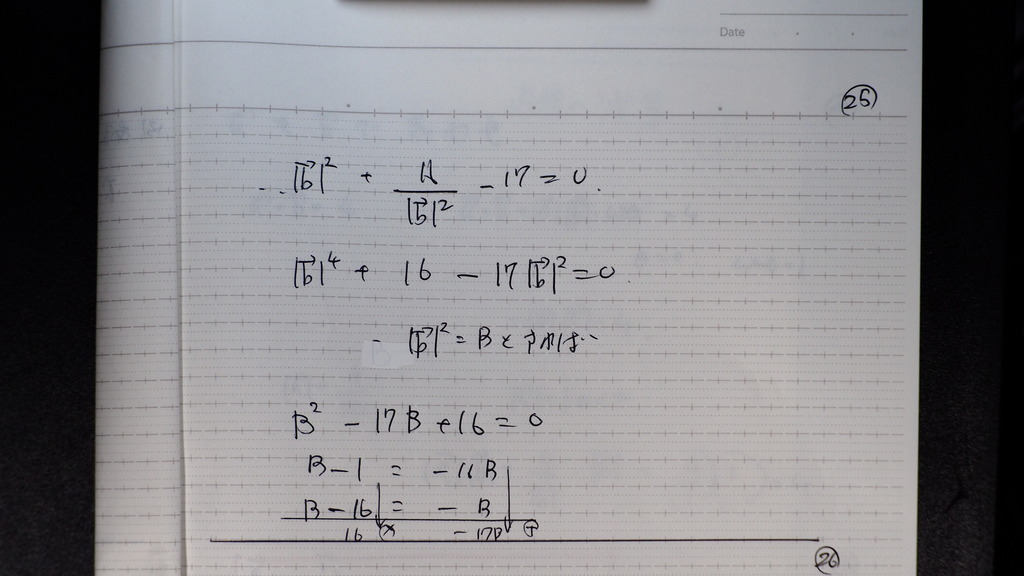 Date
25
|b⃗|² + 16/|b⃗|² - 17 = 0.
|b⃗|⁴ + 16 - 17|b⃗|² = 0.
|b⃗|² = B と すれば…
B² - 17B + 16 = 0
B - 1 = - 16B
B - 16 = - B
16 × - 17B +
26